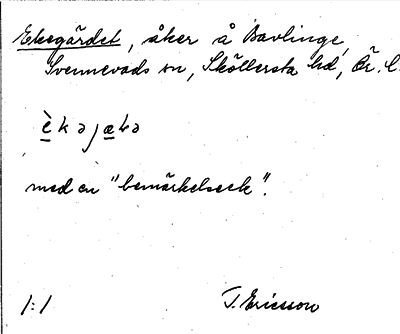 Ekegärdet, åker å Bavlinge,
Svennevads sn, Sköllersta hd, Ör. l.
èkəjæɫə
med en "bemärkelseek".
1:1 T. Ericsson